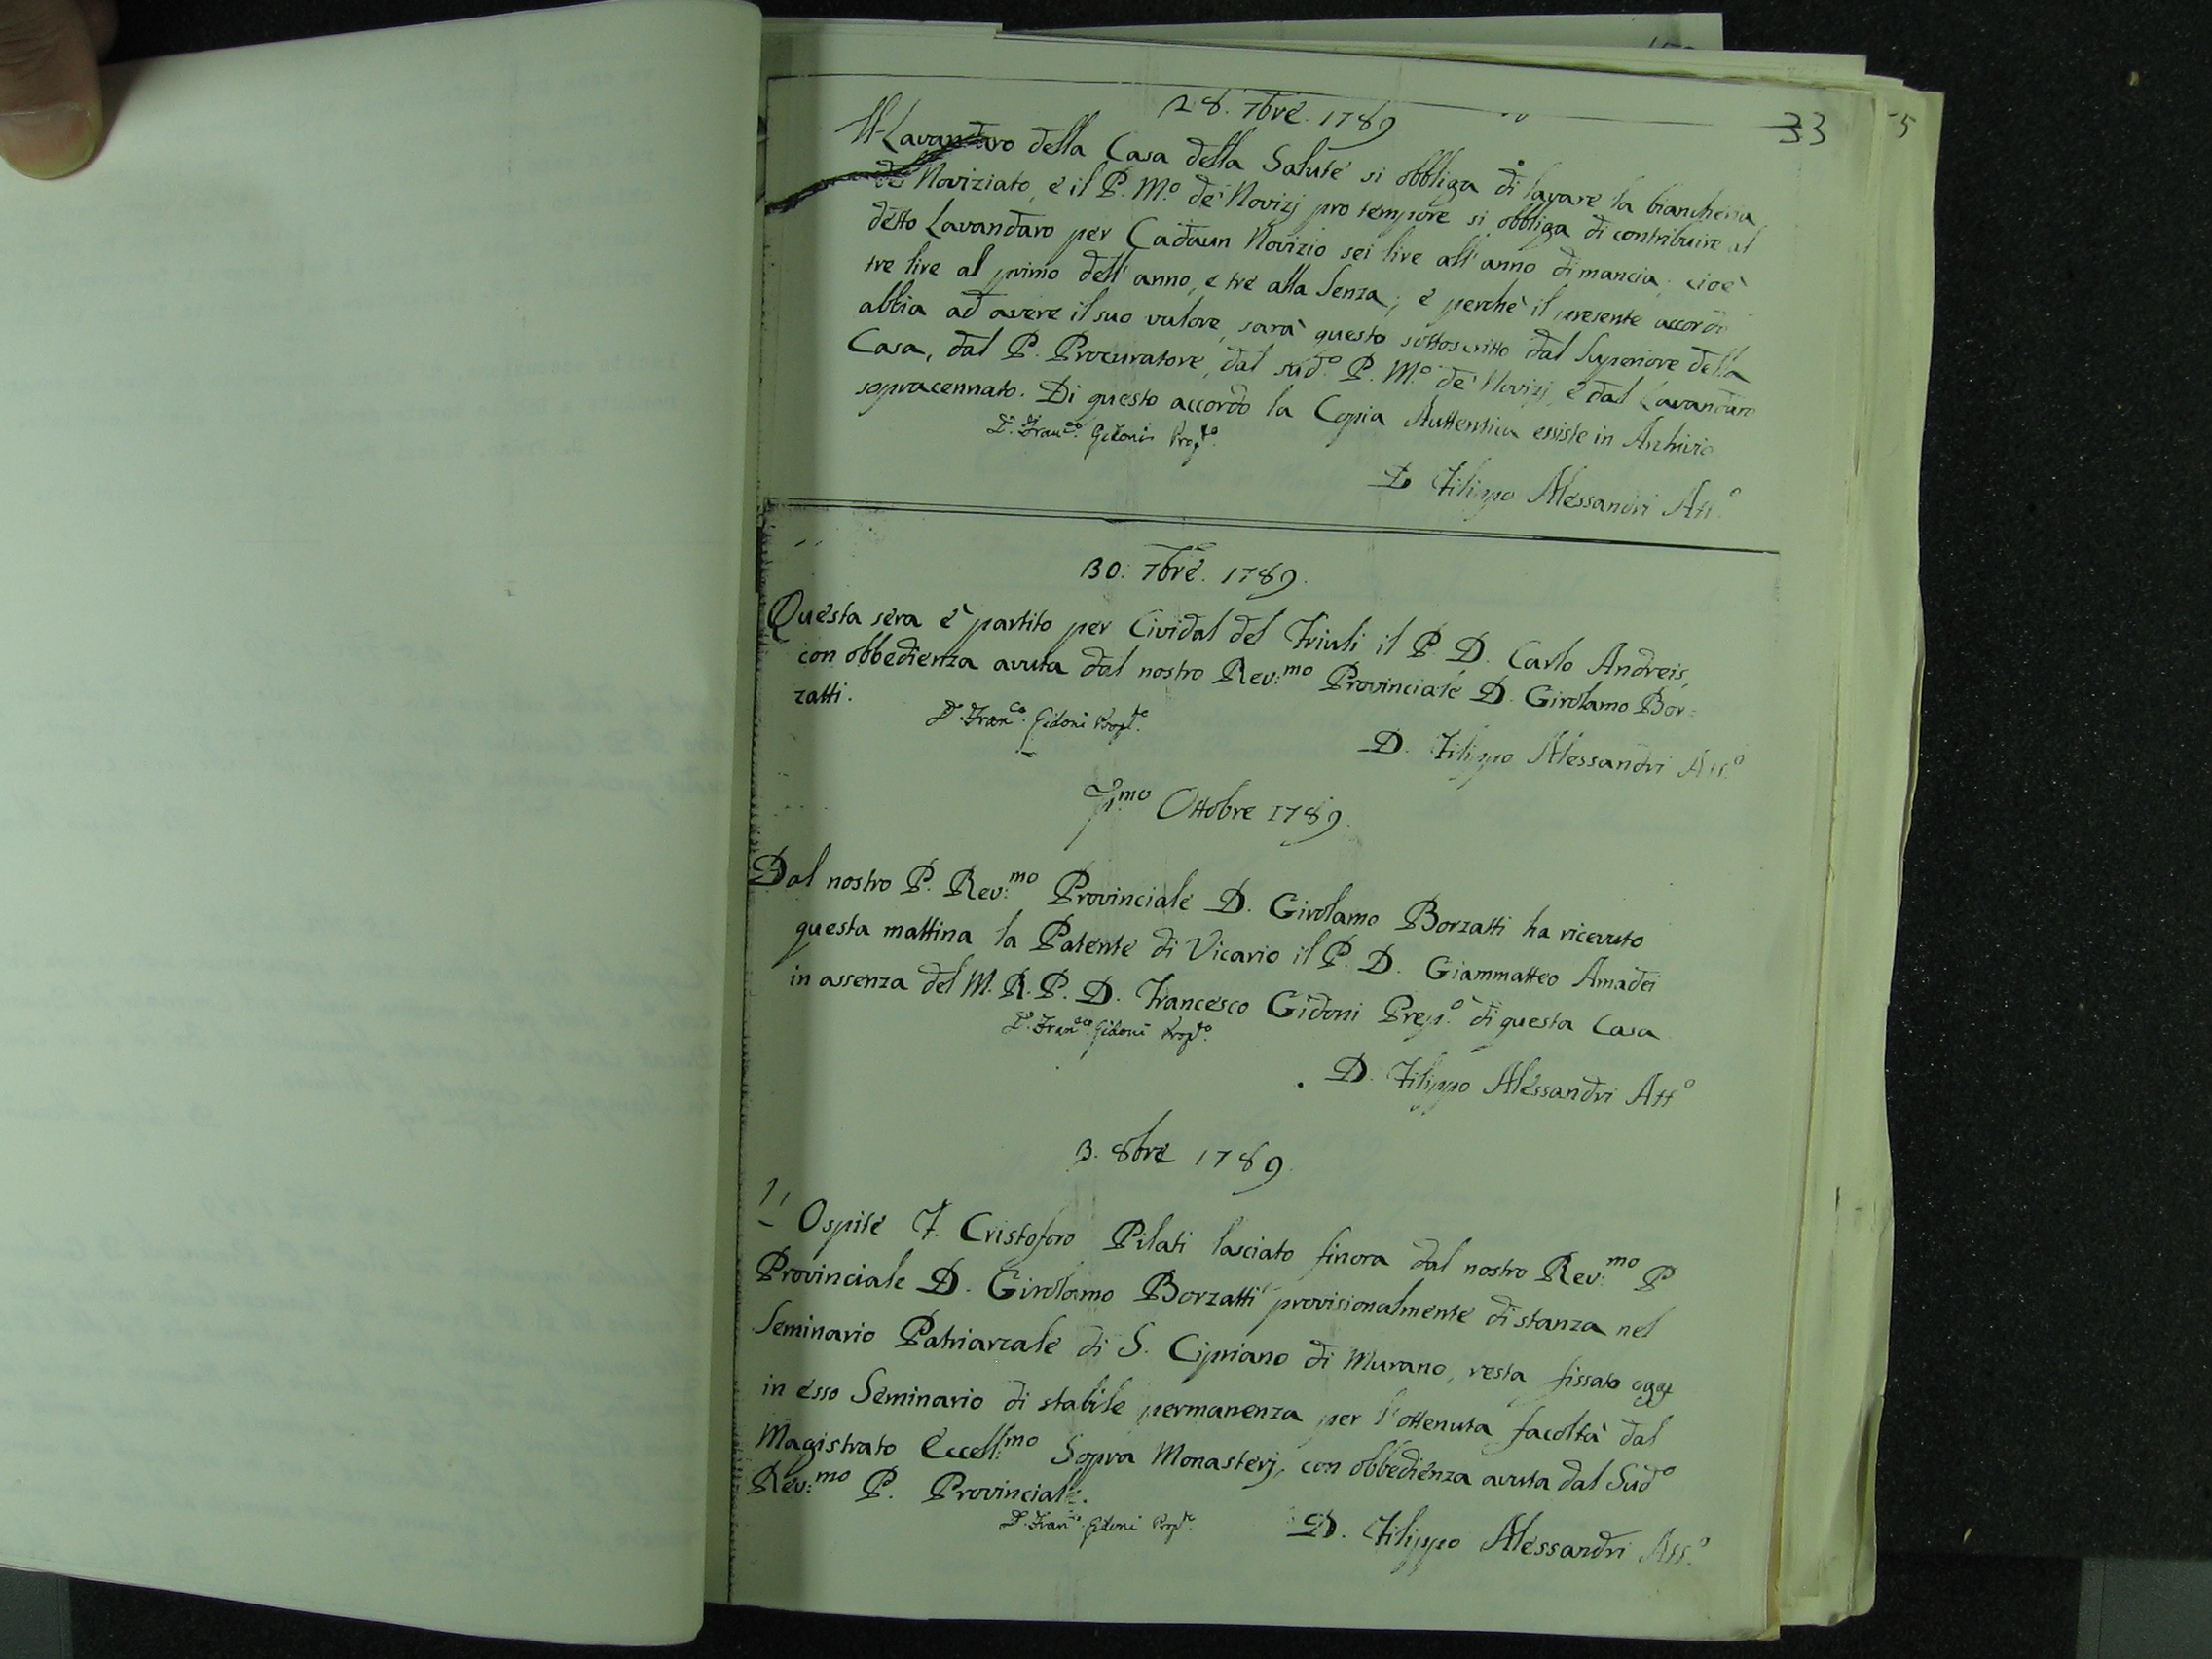 33
5
28. 7bre. 1789
Il Lavandaro della Casa della Salute si obbliga di lavare la biancheria
del Noviziato, e il P. M.o de' Novizj pro tempore si obbliga di contribuire al
detto Lavandaro per Cadaun Novizio sei lire all'anno di mancia; cioè
tre lire al primo dell'anno, e tre alla Senza; e perchè il presente accordo
abbia ad avere il suo valore, sarà questo sottoscritto dal Superiore della
Casa, dal P. Procuratore, dal sud.o P. M.o de' Novizj, e dal Lavandaro
sopracennato. Di questo accordo la Copia Auttentica essiste in Archivio
D. Fran.co Gidoni Prep.to
D. Filippo Alessandri Att.o
30. 7bre. 1789.
Questa sera è partito per Cividal del Friuli il P. D. Carlo Andreis,
con obbedienza avuta dal nostro Rev:mo Provinciale D. Girolamo Bor=
zatti.
D. Fran.co Gidoni Prep.to
D. Filippo Alessandri Att.o
P.mo Ottobre 1789.
Dal nostro P. Rev:mo Provinciale D. Girolamo Borzatti ha ricevuto
questa mattina la Patente di Vicario il P. D. Giammatteo Amadei
in assenza del M. R. P. D. Francesco Gidoni Prep.o di questa Casa
D. Fran.co Gidoni Prep.to
D. Filippo Alessandri Att.o
3. 8bre 1789.
L' Ospite F. Cristoforo Pilati lasciato finora dal nostro Rev:mo P
Provinciale D. Girolamo Borzatti provisionalmente di stanza nel
Seminario Patriarcale di S. Cipriano di Murano, resta fissato oggi
in esso Seminario di stabile permanenza per l'ottenuta facoltà dal
Magistrato Eccell:mo Sopra Monasterj, con obbedienza avuta dal Sud.o
Rev:mo P. Provinciale.
D. Fran.co Gidoni Prep.to
D. Filippo Alessandri Att.o